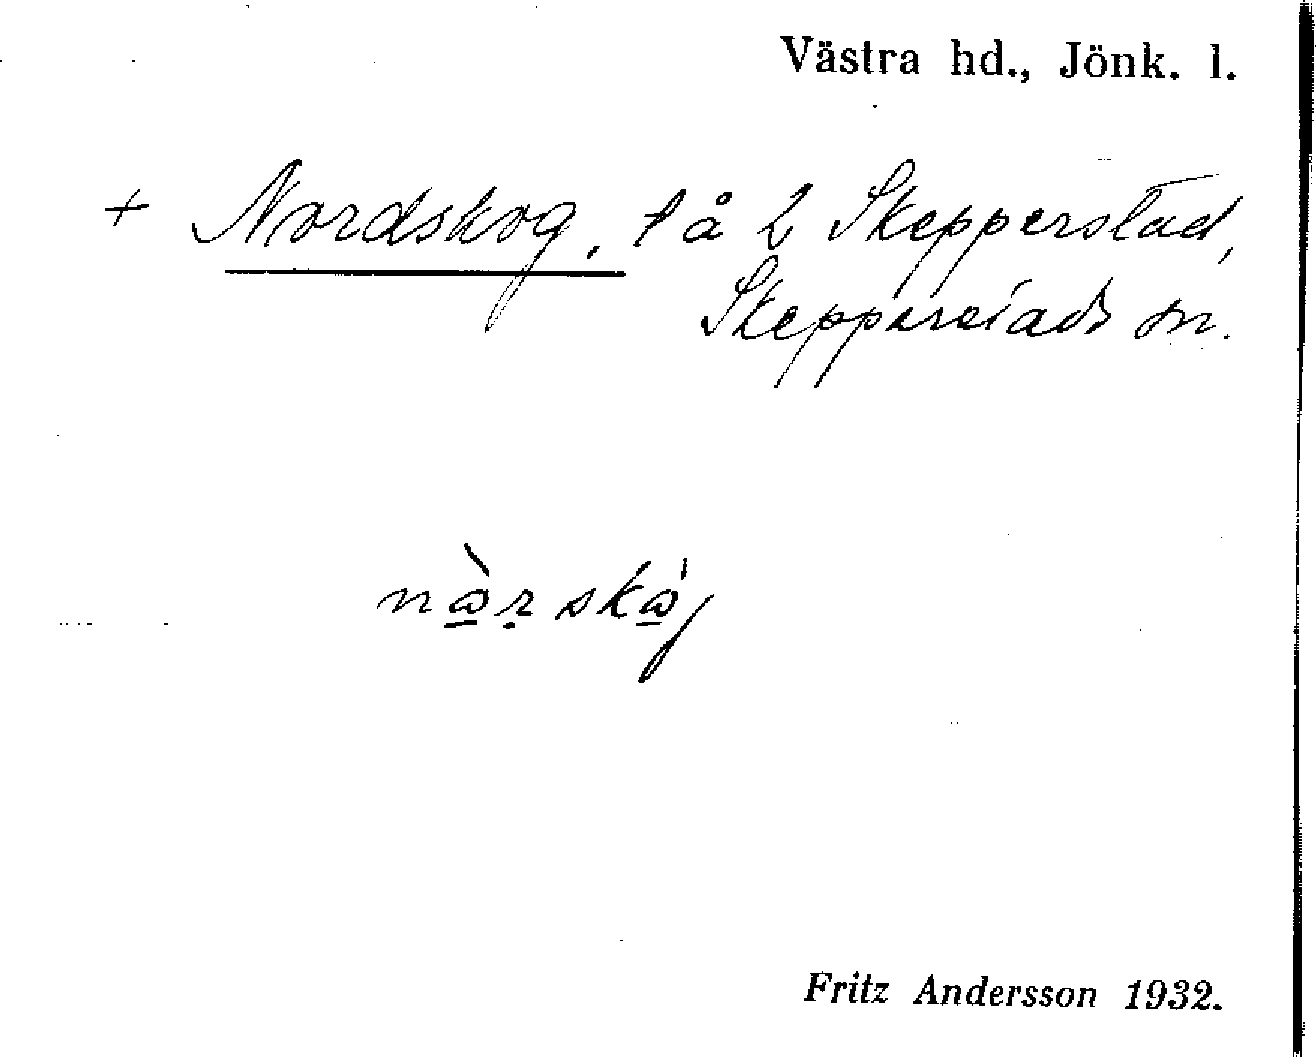 Västra hd., Jönk. l.
+ Nordskog, t å 2 Skepperstad,
Skepperstads sn.
Fritz Andersson 1932.